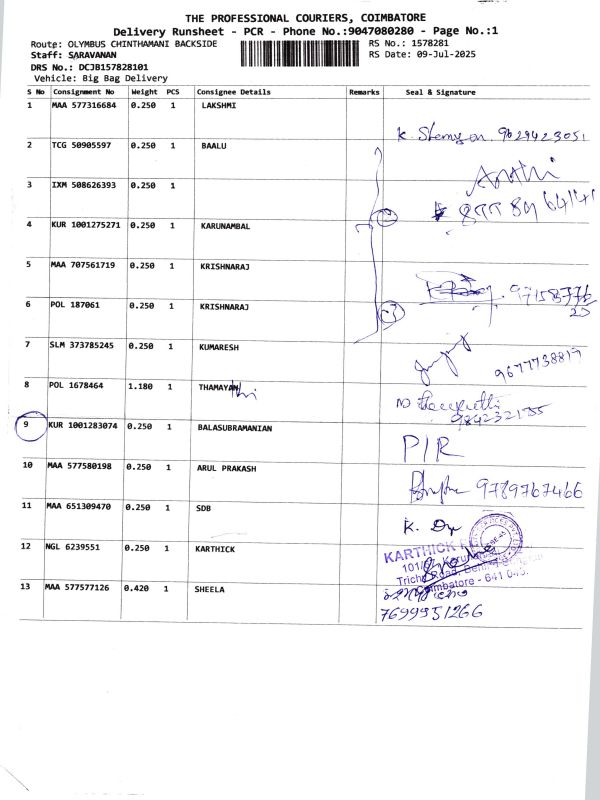 THE PROFESSIONAL COURIERS, COIMBATORE
Delivery Runsheet - PCR - Phone No.:9047080280 - Page No.:1
Route: OLYMBUS CHINTHAMANI BACKSIDE RS No.: 1578281
Staff: SARAVANAN RS Date: 09-Jul-2025
DRS No.: DCJB157828101
Vehicle: Big Bag Delivery
S No Consignment No Weight PCS Consignee Details Remarks Seal & Signature
1 MAA 577316684 0.250 1 LAKSHMI
9629423051
2 TCG 50905597 0.250 1 BAALU
3 IXM 508626393 0.250 1
4 KUR 1001275271 0.250 1 KARUNAMBAL
5 MAA 707561719 0.250 1 KRISHNARAJ
6 POL 187061 0.250 1 KRISHNARAJ
7 SLM 373785245 0.250 1 KUMARESH
9677738817
8 POL 1678464 1.180 1 THAMAYANthi
9842321755
9 KUR 1001283074 0.250 1 BALASUBRAMANIAN
P/R
10 MAA 577580198 0.250 1 ARUL PRAKASH
9789767466
11 MAA 651309470 0.250 1 SDB
12 NGL 6239551 0.250 1 KARTHICK
KARTHICK
Trichy Road,
Coimbatore - 641 045.
13 MAA 577577126 0.420 1 SHEELA
7699951266